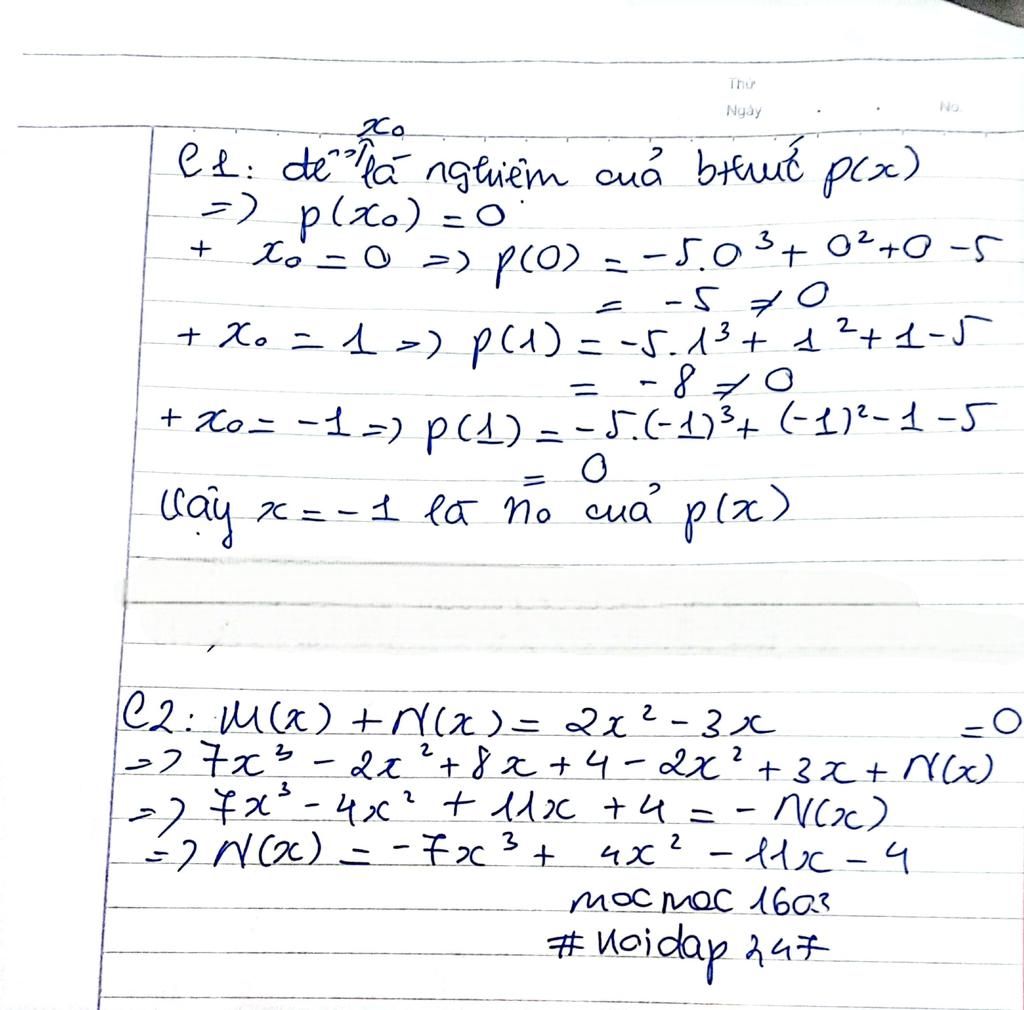 Thứ
Ngày . . No.
x₀
C1: để là nghiệm của bthức p(x)
=> p(x₀) = 0
+ x₀ = 0 => p(0) = -5.0³ + 0² + 0 - 5
= -5 ≠ 0
+ x₀ = 1 => p(1) = -5.1³ + 1² + 1 - 5
= -8 ≠ 0
+ x₀ = -1 => p(1) = -5.(-1)³ + (-1)² - 1 - 5
= 0
Vậy x = -1 là no của p(x)
C2: M(x) + N(x) = 2x² - 3x
=> 7x³ - 2x² + 8x + 4 - 2x² + 3x + N(x) = 0
=> 7x³ - 4x² + 11x + 4 = - N(x)
=> N(x) = -7x³ + 4x² - 11x - 4
mocmoc 1603
# hoidap 247